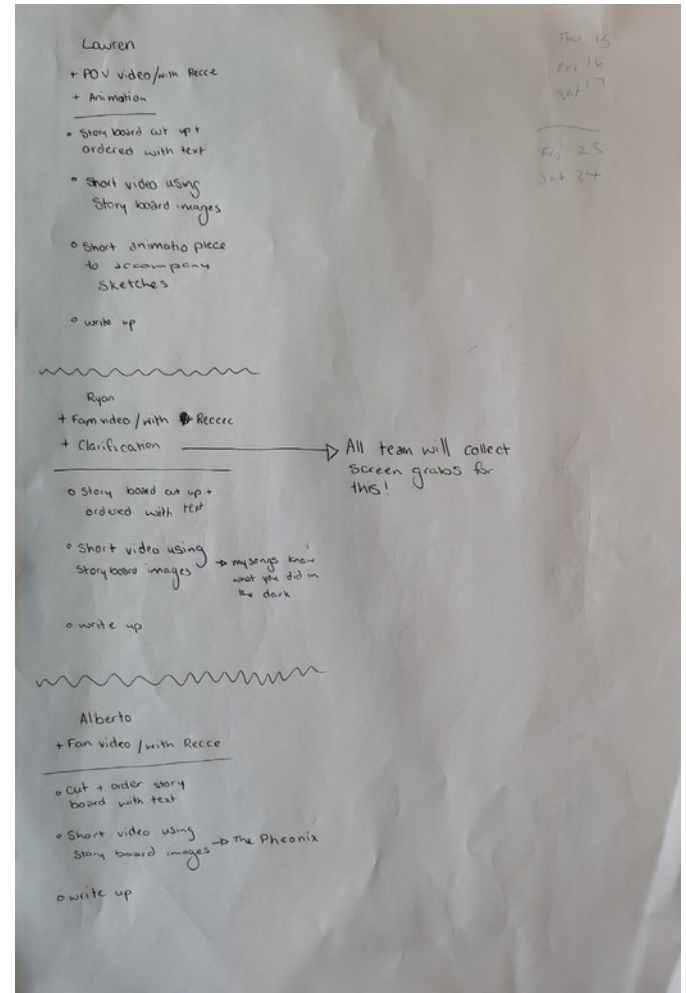 Lauren
+ POV video/with Recce
+ Animation
• Story board cut up +
ordered with text
• Short video using
Story board images
• Short animatio piece
to accompany
sketches
• write up
Ryan
+ Fam video / with Reccec
+ Clarification
All team will collect
screen grabs for
this!
• Story board cut up +
ordered with text
• Short video using
Story board images
→ my songs know
what you did in
the dark
• write up
Alberto
+ Fan video / with Recce
• Cut + order story
board with text
• Short video using
Story board images → The Pheonix
• write up
15
Fri 16
Sat 17
Fri 23
Sat 24